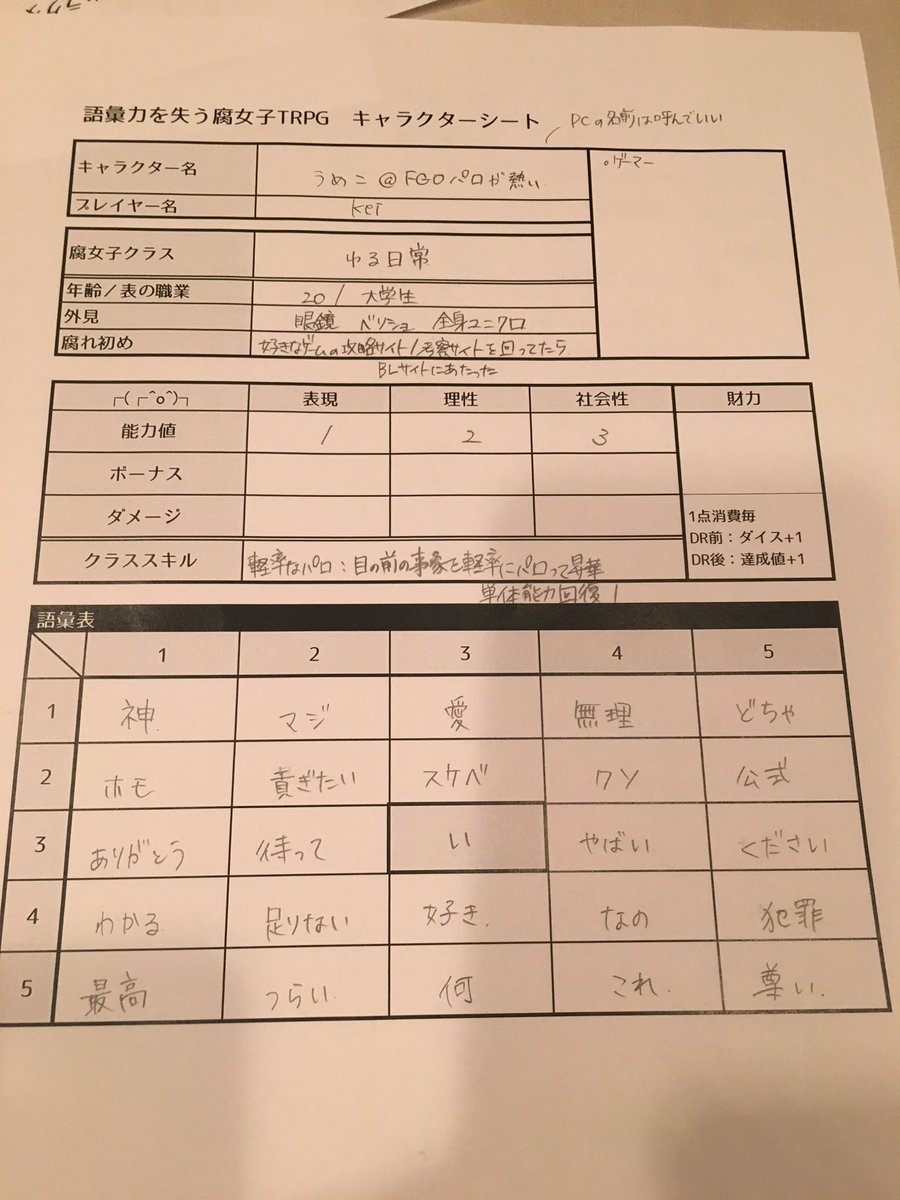 語彙力を失う腐女子TRPG　キャラクターシート
PCの名前は呼んでいい
キャラクター名 うめこ @FGOパロが熱い
プレイヤー名 kei
・ゲーマー
腐女子クラス ゆる日常
年齢/表の職業 20/ 大学生
外見 眼鏡 ベリショ 全身ユニクロ
腐れ初め 好きなゲームの攻略サイト/考察サイトを回ってたら
BLサイトにあたった
┌(┌^o^)┐ 表現 理性 社会性 財力
能力値 1 2 3
ボーナス
ダメージ
1点消費毎
DR前：ダイス+1
DR後：達成値+1
クラススキル 軽率なパロ：目の前の事象を軽率にパロって昇華
単体能力回復 1
語彙表
1 2 3 4 5
1 神 マジ 愛 無理 どちゃ
2 ホモ 貢ぎたい スケベ クソ 公式
3 ありがとう 待って い やばい ください
4 わかる 足りない 好き なの 犯罪
5 最高 つらい 何 これ 尊い